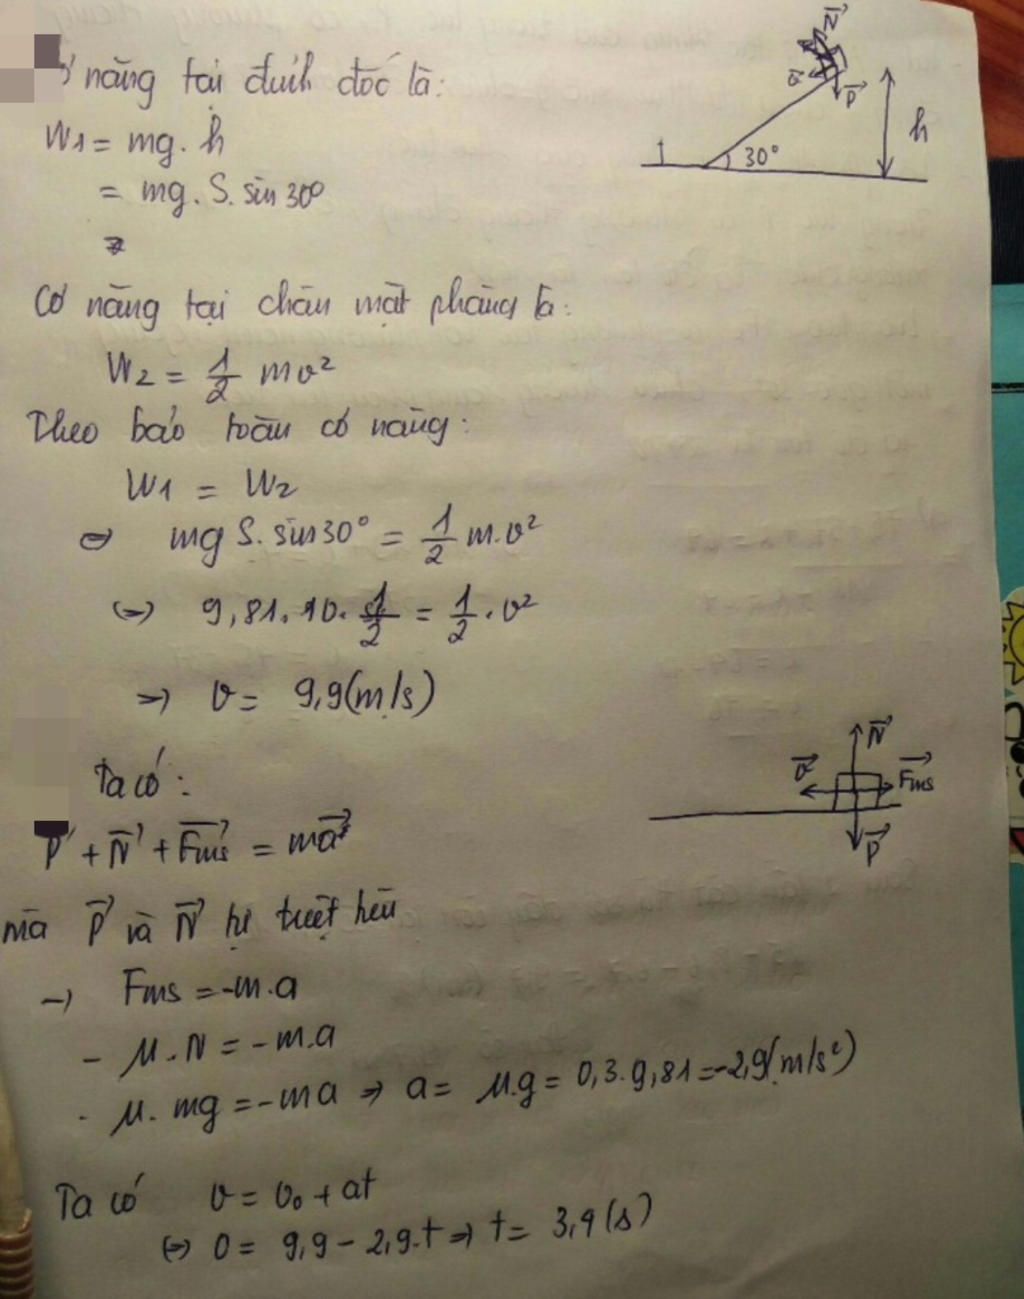 năng tại đỉnh dốc là:
W1 = mg. h
= mg. S. sin 30º
N
v
P
h
1
30º
Cơ năng tại chân mặt phẳng là:
W2 = 1/2 mv²
Theo bảo toàn cơ năng:
W1 = W2
⇔ mg S. sin30º = 1/2 m.v²
(=) 9,81.10. 1/2 = 1/2 . v²
=) v = 9,9(m/s)
Ta có:
P + N + Fms = ma
N
v
Fms
P
mà P và N trực tiêu
-) Fms = -m.a
- μ.N = -m.a
- μ. mg = -ma => a = μ.g = 0,3.9,81 = -2,9(m/s²)
Ta có v = v₀ + at
(=) 0 = 9,9 - 2,9.t => t = 3,4 (s)